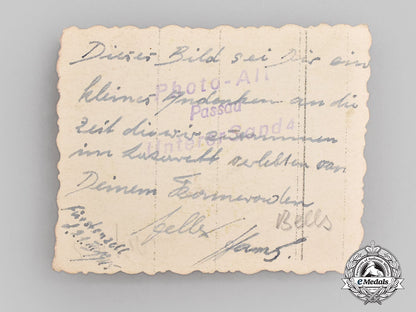 Dieses Bild sei Dir ein
kleines Andenken an die
Zeit die wir zusammen
im Lazarett verlebten von
Deinem Kameraden
Hans.
Bells
Fürstenzell
Photo-All
Passau
Unterer Sand 4
eMedals